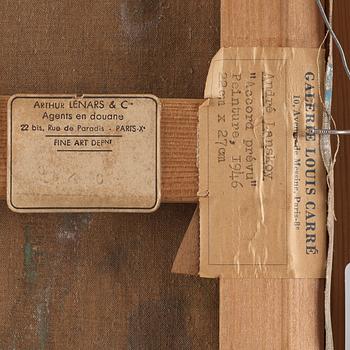 ARTHUR LÉNARS & Cie
Agents en douane
22 bis, Rue de Paradis - PARIS-Xe
FINE ART DEPNT
GALERIE LOUIS CARRÉ
10, Avenue de Messine, Paris-8e
André Lanskoy
"Accord prévu"
Peinture, 1946
22cm x 27cm